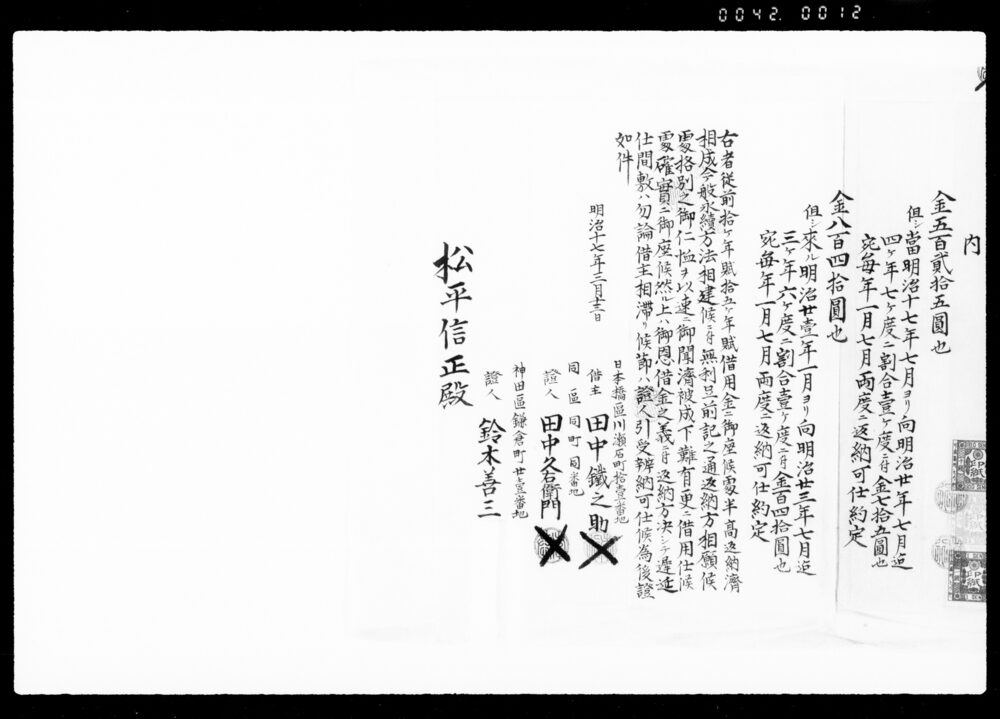 0042. 0012
内
金五百貳拾五圓也
但シ當明治十七年七月ヨリ向明治廿年七月迠
四ケ年七ケ度ニ割合壹ケ度ニ付金七拾五圓也
宛毎年一月七月両度ニ返納可仕約定
金八百四拾圓也
但シ來ル明治廿壹年一月ヨリ向明治廿三年七月迠
三ケ年六ケ度ニ割合壹ケ度ニ付金百四拾圓也
宛毎年一月七月両度ニ返納可仕約定
右者従前拾ケ年賦拾五ケ年賦借用金ニ御座候處半高返納濟
相成今般永續方法相建候ニ付無利且前記之通返納方相願候
處格別之御仁恤ヲ以速ニ御聞濟被成下難有更ニ借用仕候
處確實ニ御座候然ル上ハ御恩借金之義ニ付返納方决シテ遲延
仕間敷ハ勿論借主相滞リ候節ハ證人引受辨納可仕候為後證
如件
明治十七年三月十三日
日本橋區川瀬石町拾壹番地
借主 田中鐵之助
同區同町同番地
證人 田中久右衛門
神田區鎌倉町廿壹番地
證人 鈴木善三
松平信正殿